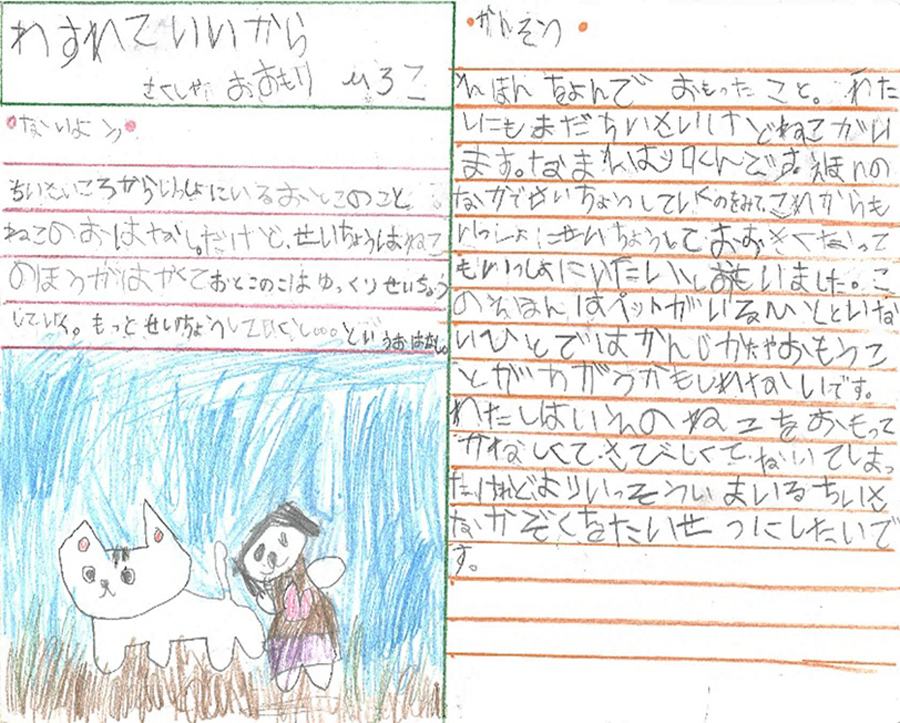 わすれていいから
さくしゃ おおもり ひろこ
ないよう
ちいさいころからいっしょにいるおとこのこと
ねこのおはなし。だけど、せいちょうはねこ
のほうがはやくておとこのこはゆっくりせいちょう
していく。もっとせいちょうしていくと。。。というおはなし。
かんそう
えほんをよんでおもったこと。わた
しにもまだちいさいけどねこがい
ます。なまえはソロくんです。えほんの
なかでせいちょうしていくのをみて、これからも
いっしょにせいちょうしておおきくなって
もいっしょにいたいとおもいました。こ
のえほんはペットがいるひとといな
いひとではかんじかたやおもうこ
とがちがうかもしれないです。
わたしはいえのねこをおもって
かなしくて、さびしくて、ないてしまっ
たけれどよりいっそういまいるちいさ
なかぞくをたいせつにしたいで
す。